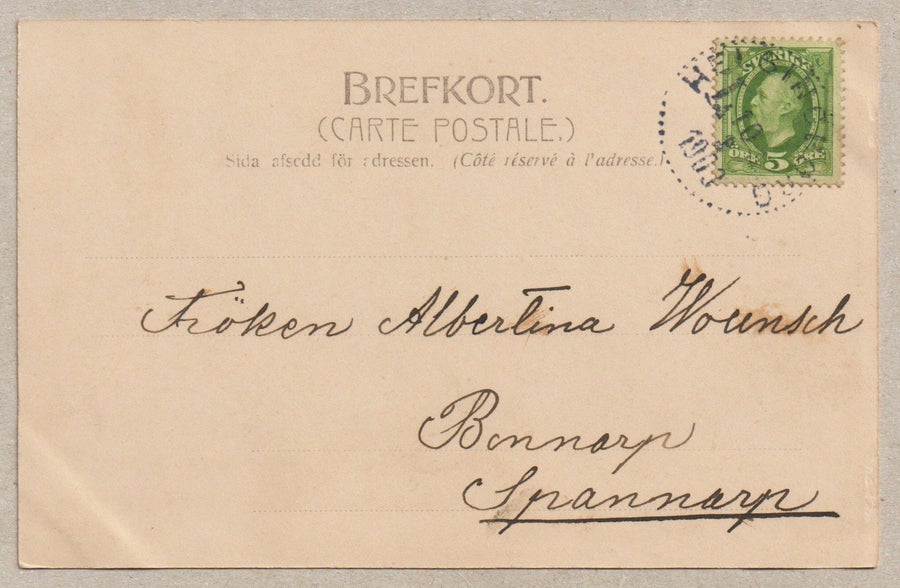 BREFKORT.
(CARTE POSTALE.)
Sida afsedd för adressen. (Côté réservé à l'adresse.)
SVERIGE
ÖRE 5 ÖRE
HELSINGBORG
1903
Fröken Albertina Wounsch
Bonnarp
Spannarp